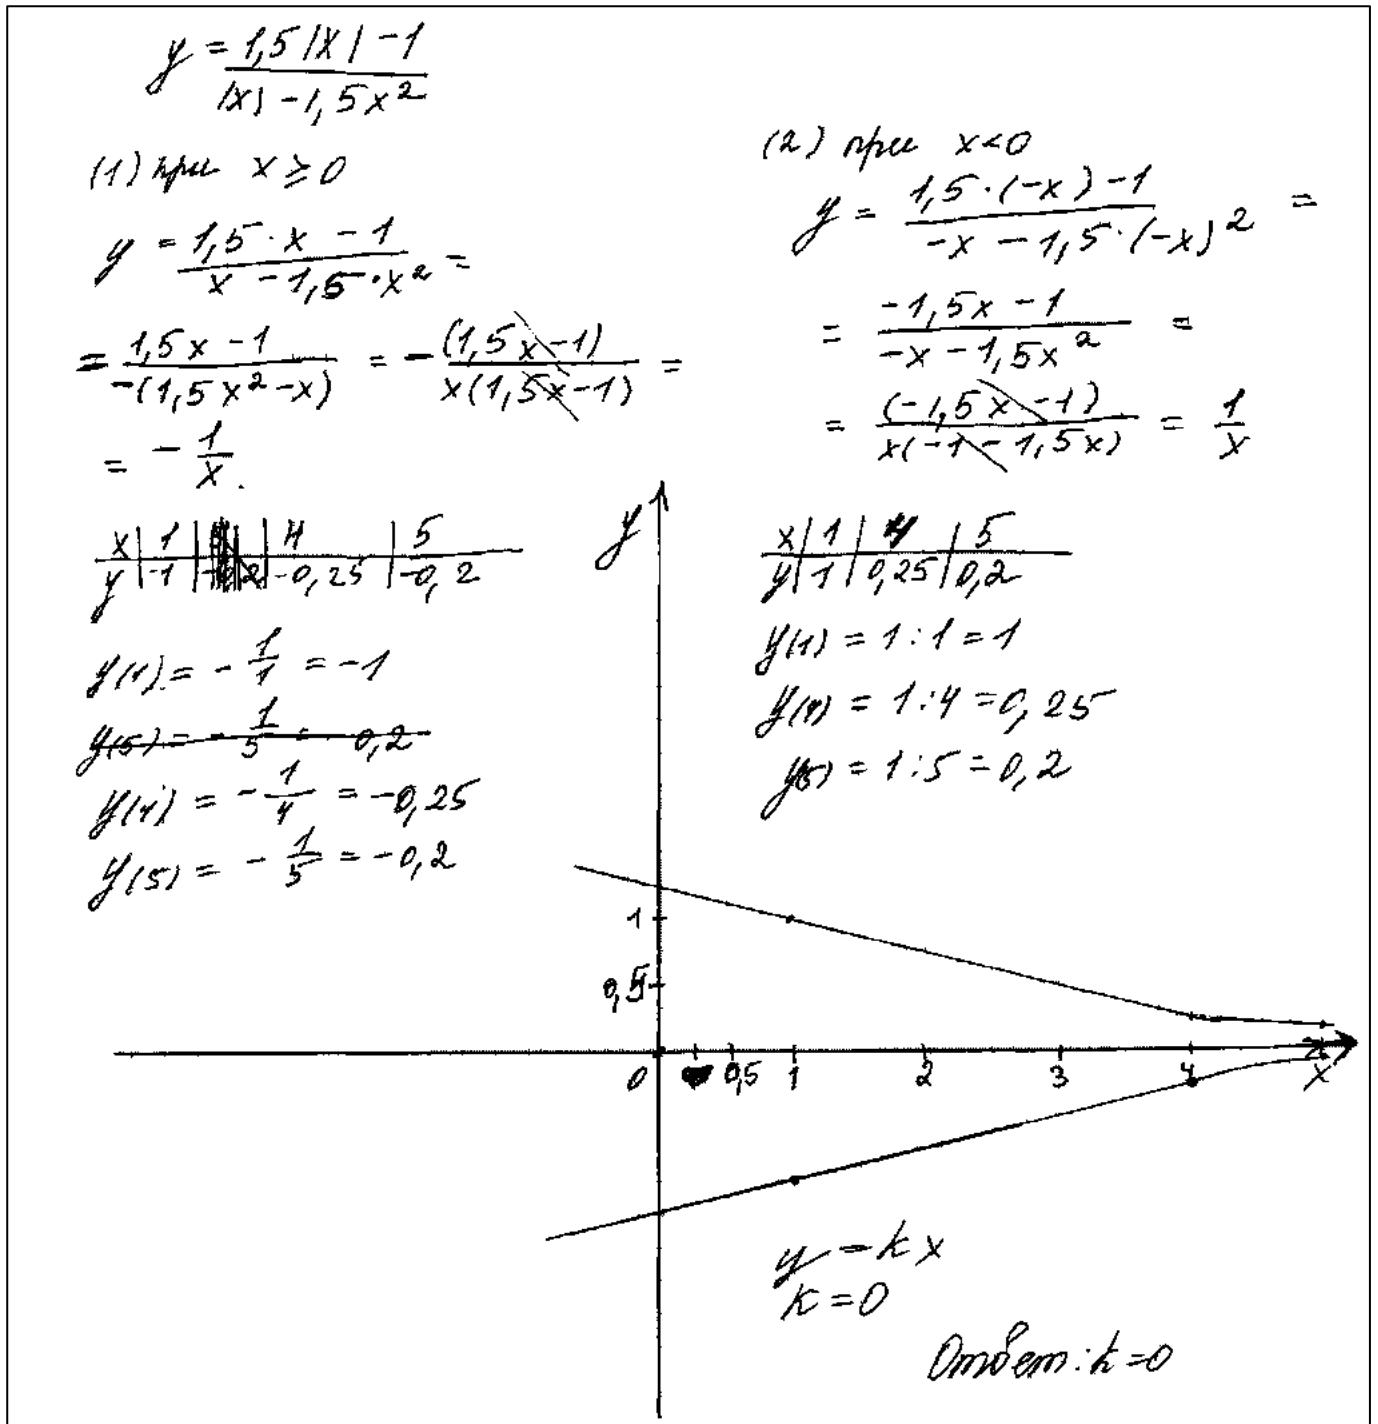 y = (1,5|x| - 1)/(|x| - 1,5x²)
(1) при x ≥ 0
y = (1,5·x - 1)/(x - 1,5·x²) =
= (1,5x - 1)/(-(1,5x² - x)) = -(1,5x - 1)/(x(1,5x - 1)) =
= - 1/x.
x | 1 | 4 | 5
y | -1 | -0,25 | -0,2
y(1) = - 1/1 = -1
y(5) = - 1/5 = - 0,2
y(4) = - 1/4 = -0,25
y(5) = - 1/5 = -0,2
(2) при x<0
y = (1,5·(-x) - 1)/(-x - 1,5·(-x)²) =
= (-1,5x - 1)/(-x - 1,5x²) =
= (-1,5x - 1)/(x(-1 - 1,5x)) = 1/x
x | 1 | 4 | 5
y | 1 | 0,25 | 0,2
y(1) = 1:1 = 1
y(4) = 1:4 = 0,25
y(5) = 1:5 = 0,2
y
1
0,5
0 0,5 1 2 3 4 x
y = kx
k = 0
Ответ: k = 0